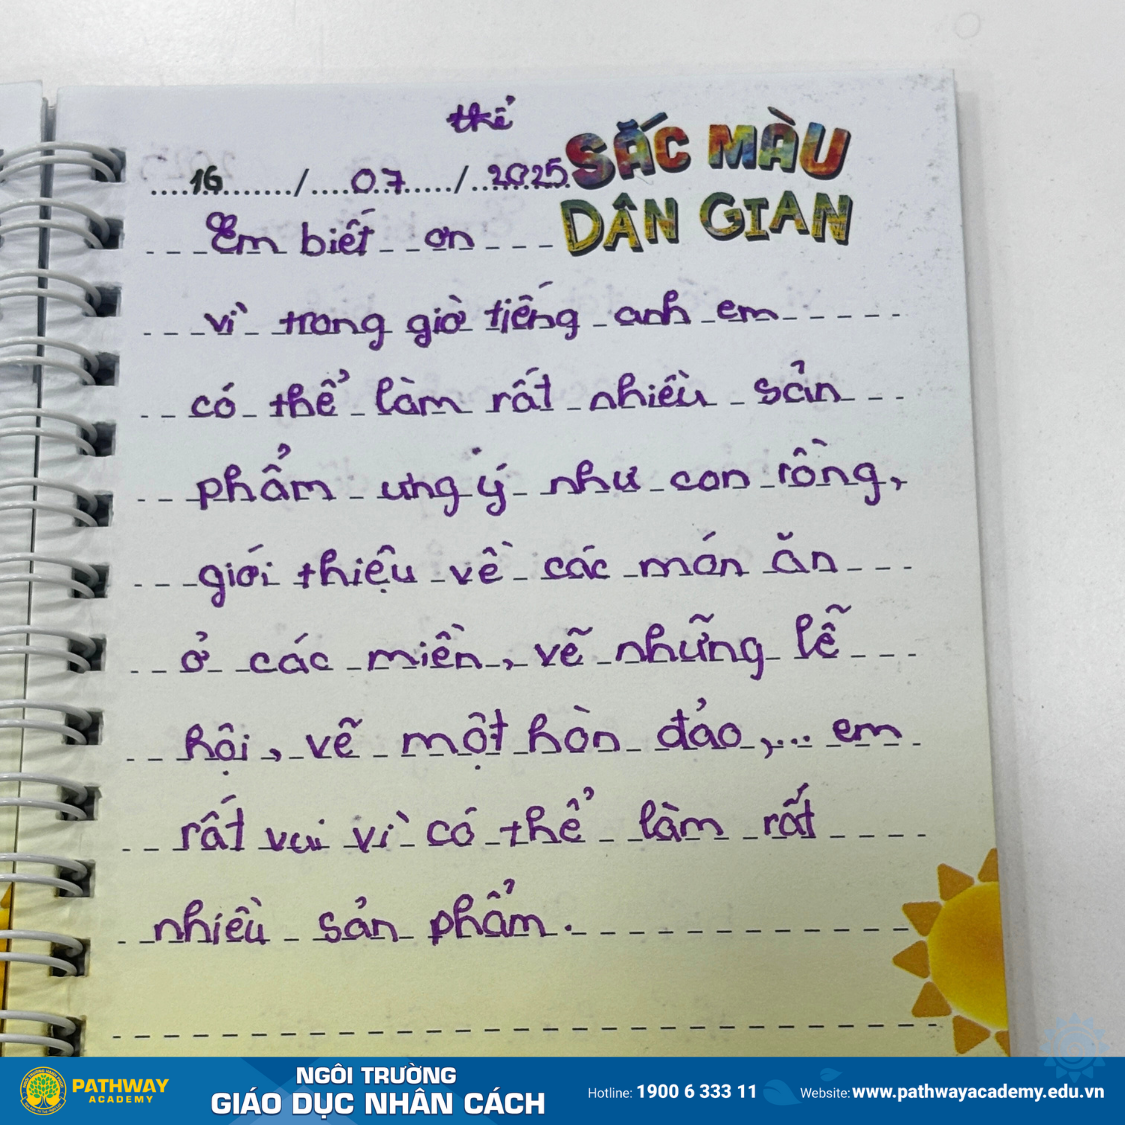 thể
SẮC MÀU
16 / 07 / 2025
DÂN GIAN
Em biết ơn
vì trong giờ tiếng anh em
có thể làm rất nhiều sản
phẩm ưng ý như con rồng,
giới thiệu về các món ăn
ở các miền, vẽ những lễ
hội, vẽ một hòn đảo,... em
rất vui vì có thể làm rất
nhiều sản phẩm.
PATHWAY
ACADEMY
NGÔI TRƯỜNG
GIÁO DỤC NHÂN CÁCH
Hotline: 1900 6 333 11
Website: www.pathwayacademy.edu.vn